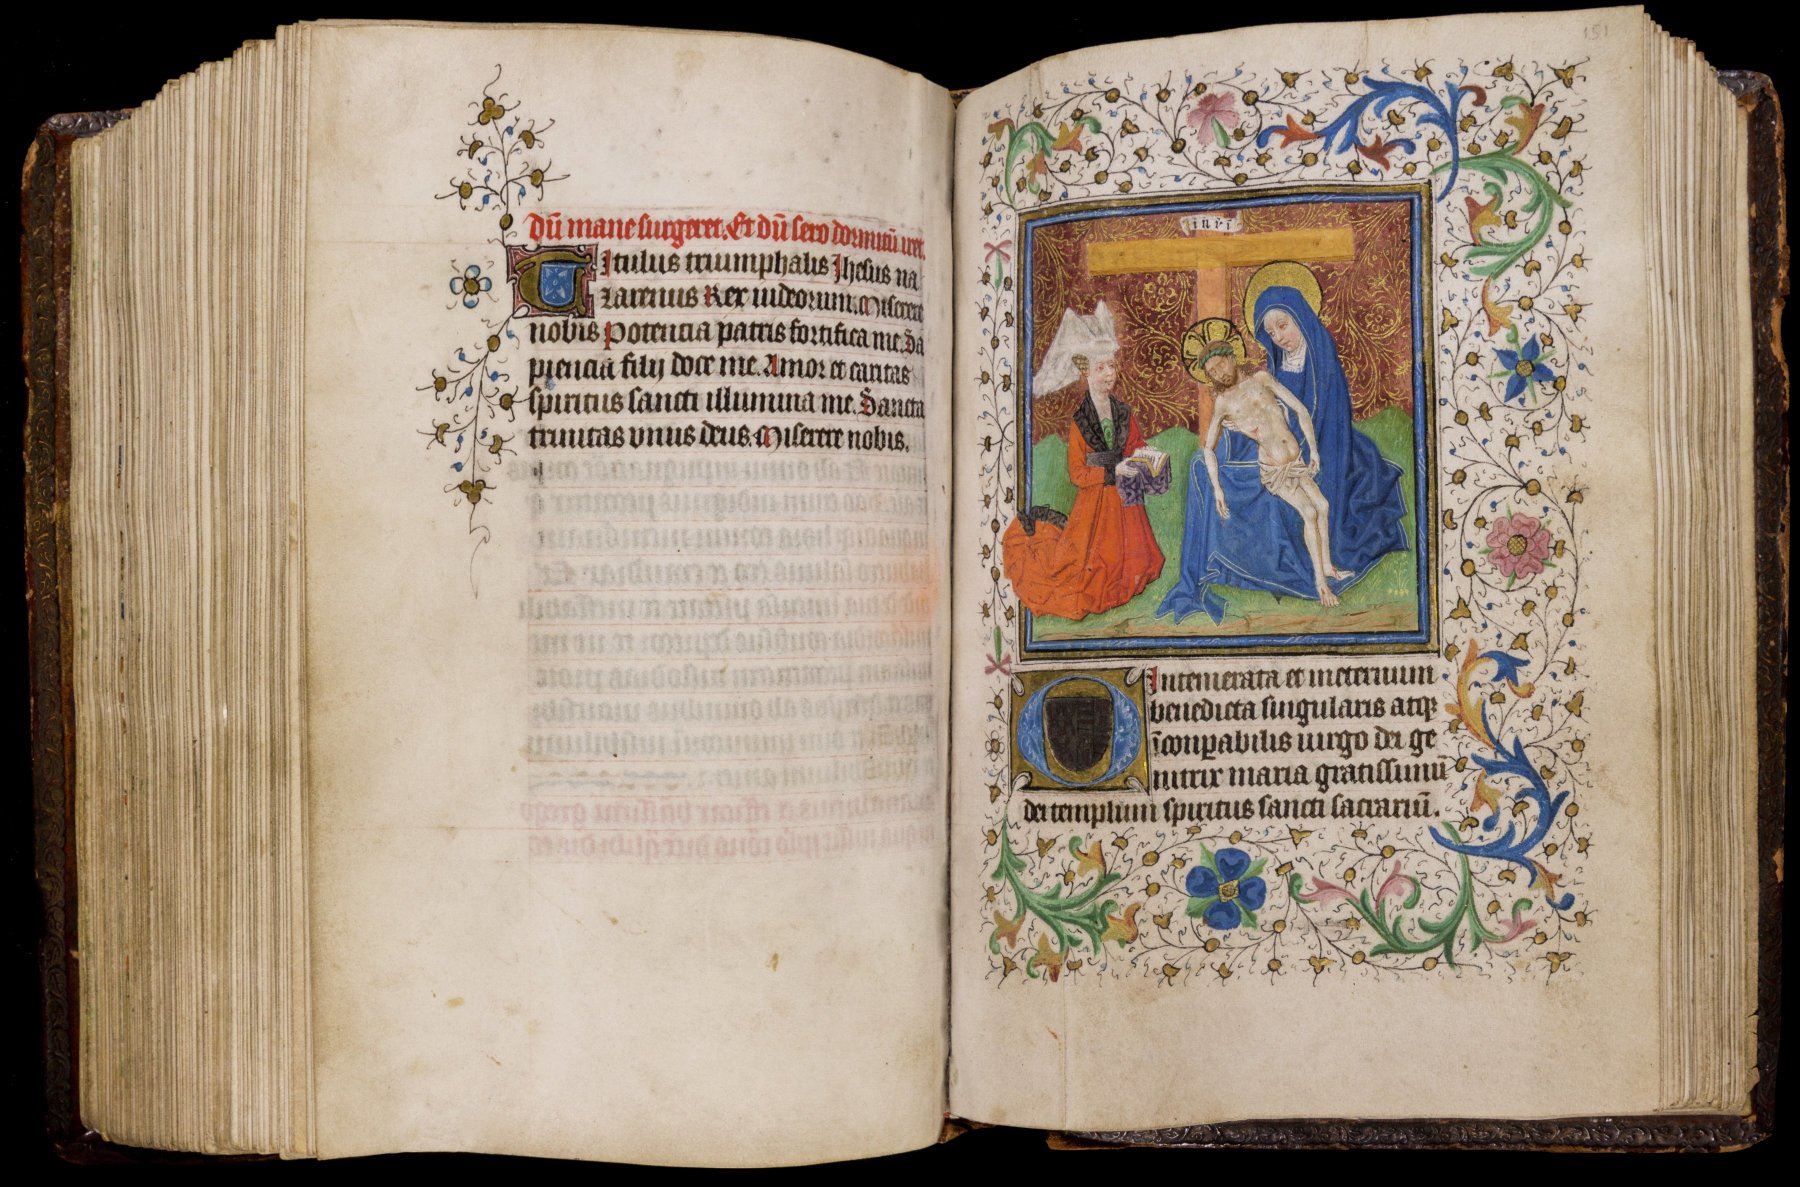 Dū mane surgeret. Et dū sero dormitū iret.
Titulus triumphalis Jhesus na
zarenus Rex iudeorum. Miserere
nobis Potencia patris fortifica me. Sa
piencia filij doce me. Amor et caritas
spiritus sancti illumina me. Sancta
trinitas vnus deus. Miserere nobis.
151
inri
O Intemerata et ineternum
benedicta singularis atqꝫ
īconꝑabilis uirgo dei ge
nitrix maria gratissimū
dei templum spiritus sancti sacrariū.